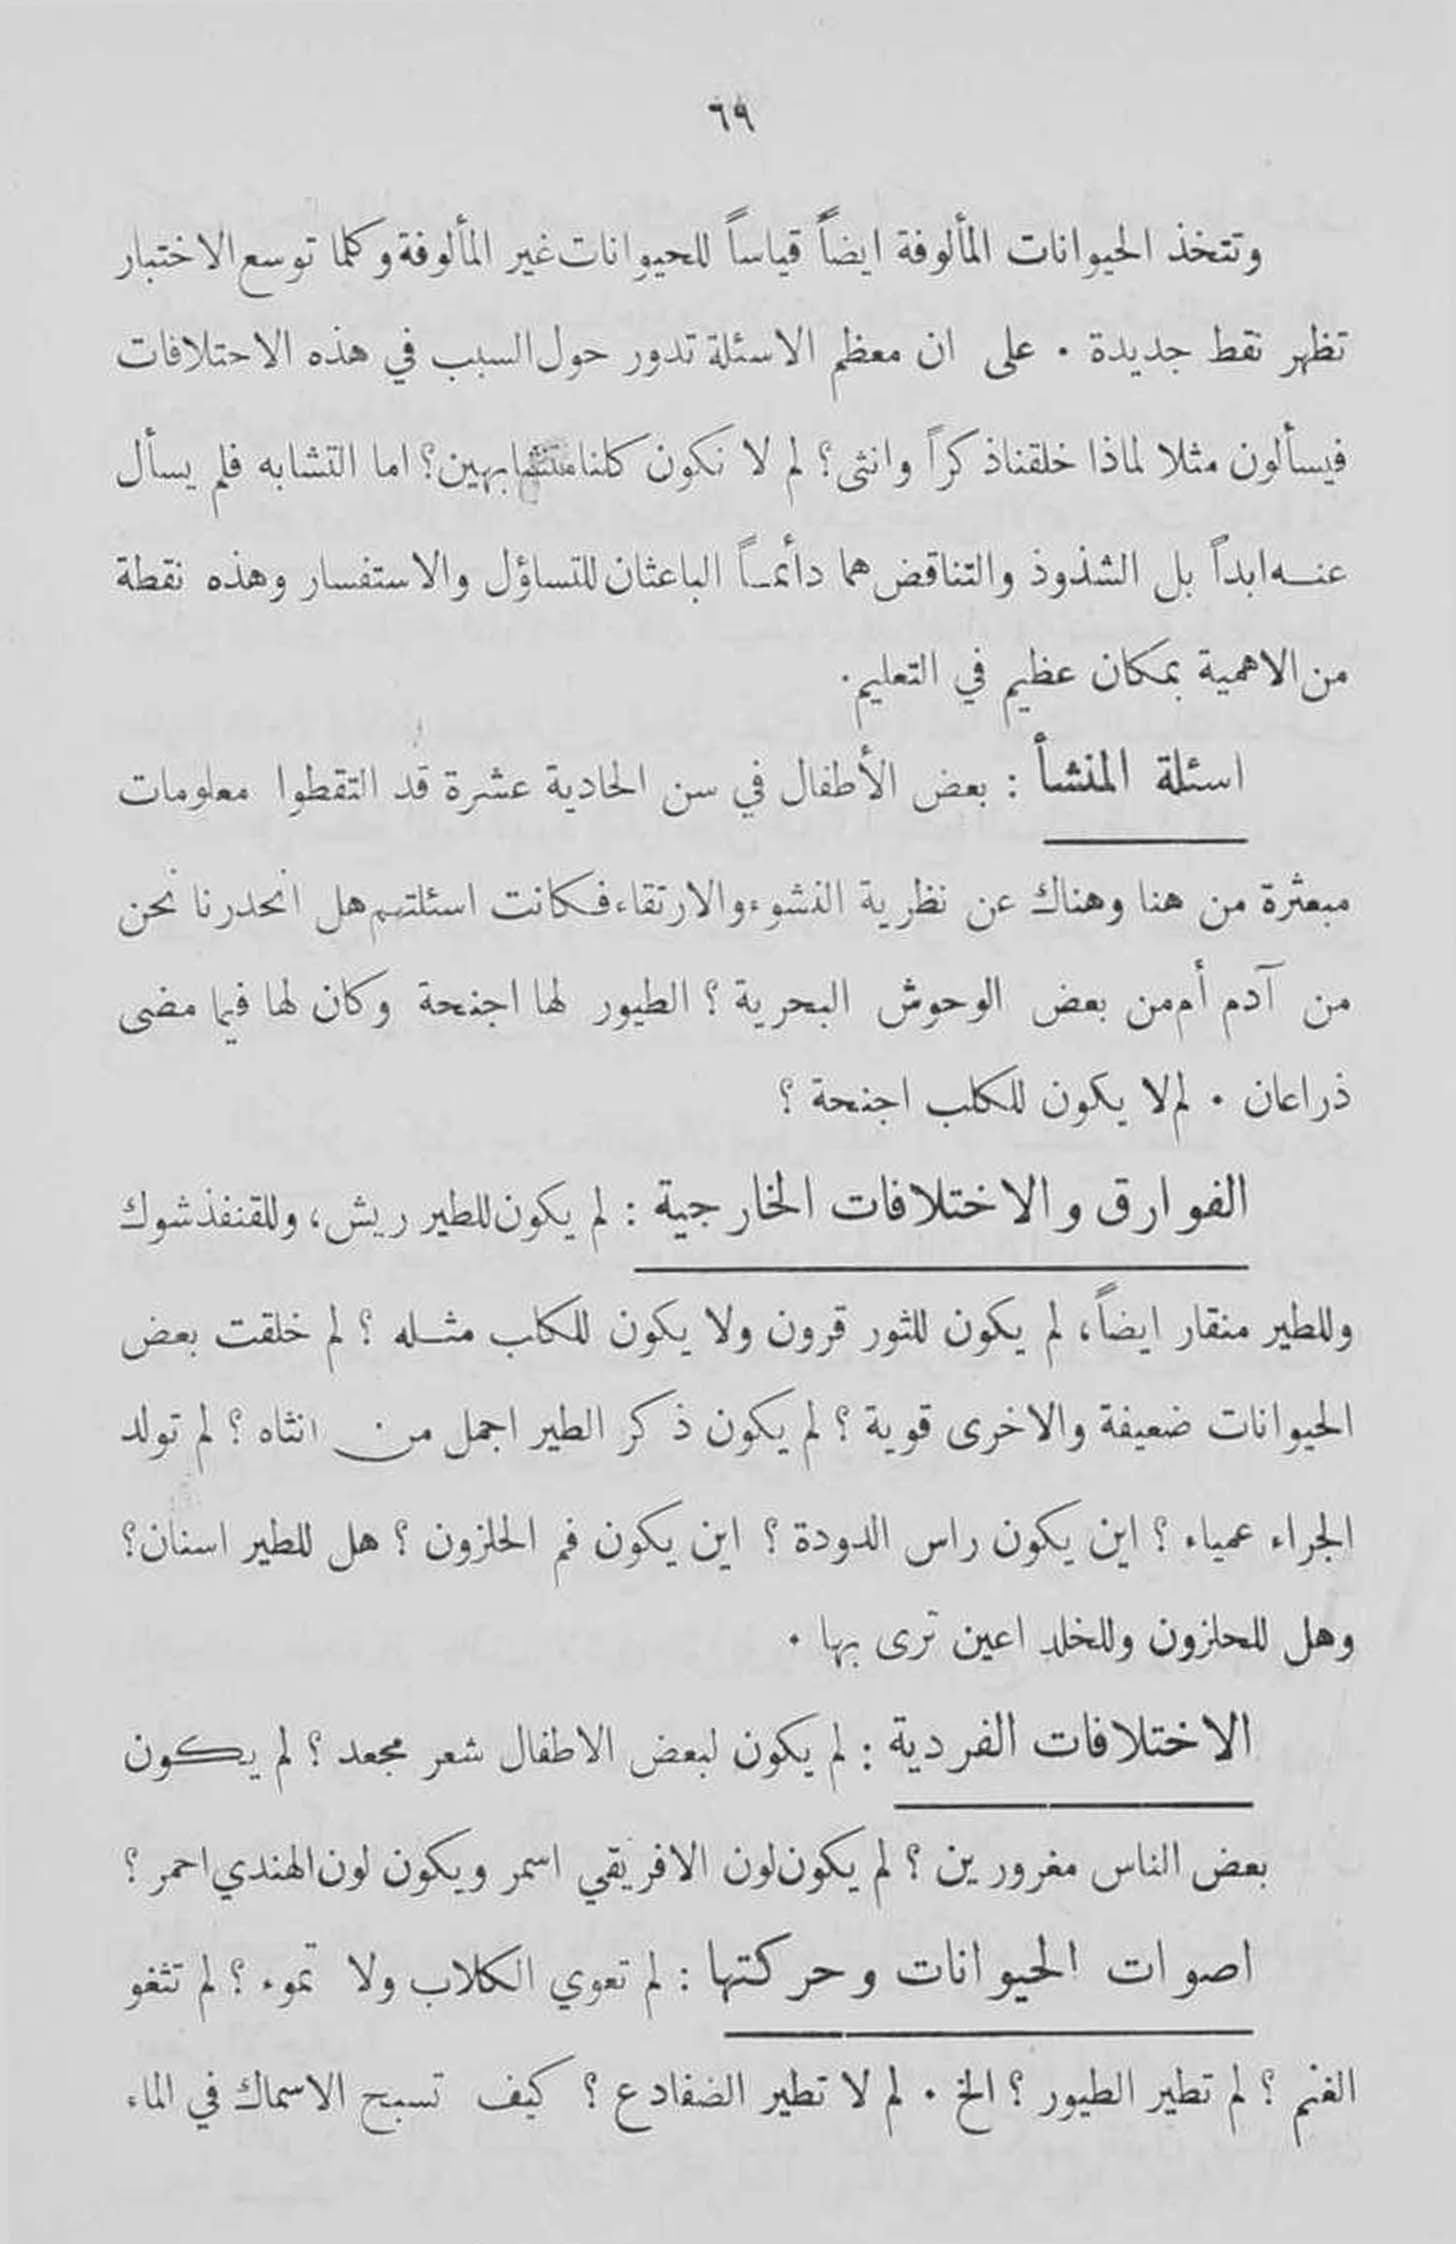 ٦٩
وتتخذ الحيوانات المألوفة ايضاً قياساً للحيوانات غير المألوفة وكلما توسع الاختبار
تظهر نقط جديدة . على ان معظم الاسئلة تدور حول السبب في هذه الاحتلافات
فيسألون مثلا لماذا خلقنا ذكراً وانثى ؟ لم لا نكون كلنا متشابهين ؟ اما التشابه فلم يسأل
عنه ابداً بل الشذوذ والتناقض هما دأئماً الباعثان للتساؤل والاستفسار وهذه نقطة
من الاهمية بمكان عظيم في التعليم .
اسئلة المنشأ : بعض الأطفال في سن الحادية عشرة قد التقطوا معلومات
مبعثرة من هنا وهناك عن نظرية النشوء والارتقاء فكانت اسئلتهم هل انحدرنا نحن
من آدم أم من بعض الوحوش البحرية ؟ الطيور لها اجنحة وكان لها فيما مضى
ذراعان . لم لا يكون للكلب اجنحة ؟
الفوارق والاختلافات الخارجية : لم يكون للطير ريش ، وللقنفذ شوك
وللطير منقار ايضاً ، لم يكون للثور قرون ولا يكون للكلب مثله ؟ لم خلقت بعض
الحيوانات ضعيفة والاخرى قوية ؟ لم يكون ذكر الطير اجمل من انثاه ؟ لم تولد
الجراء عمياء ؟ اين يكون راس الدودة ؟ اين يكون فم الحلزون ؟ هل للطير اسنان ؟
وهل للحلزون وللخلد اعين ترى بها .
الاختلافات الفردية : لم يكون لبعض الاطفال شعر مجعد ؟ لم يكون
بعض الناس مغرورين ؟ لم يكون لون الافريقي اسمر ويكون لون الهندي احمر ؟
اصوات الحيوانات وحركتها : لم تعوي الكلاب ولا تموء ؟ لم تثغو
الغنم ؟ لم تطير الطيور ؟ الخ . لم لا تطير الضفادع ؟ كيف تسبح الاسماك في الماء